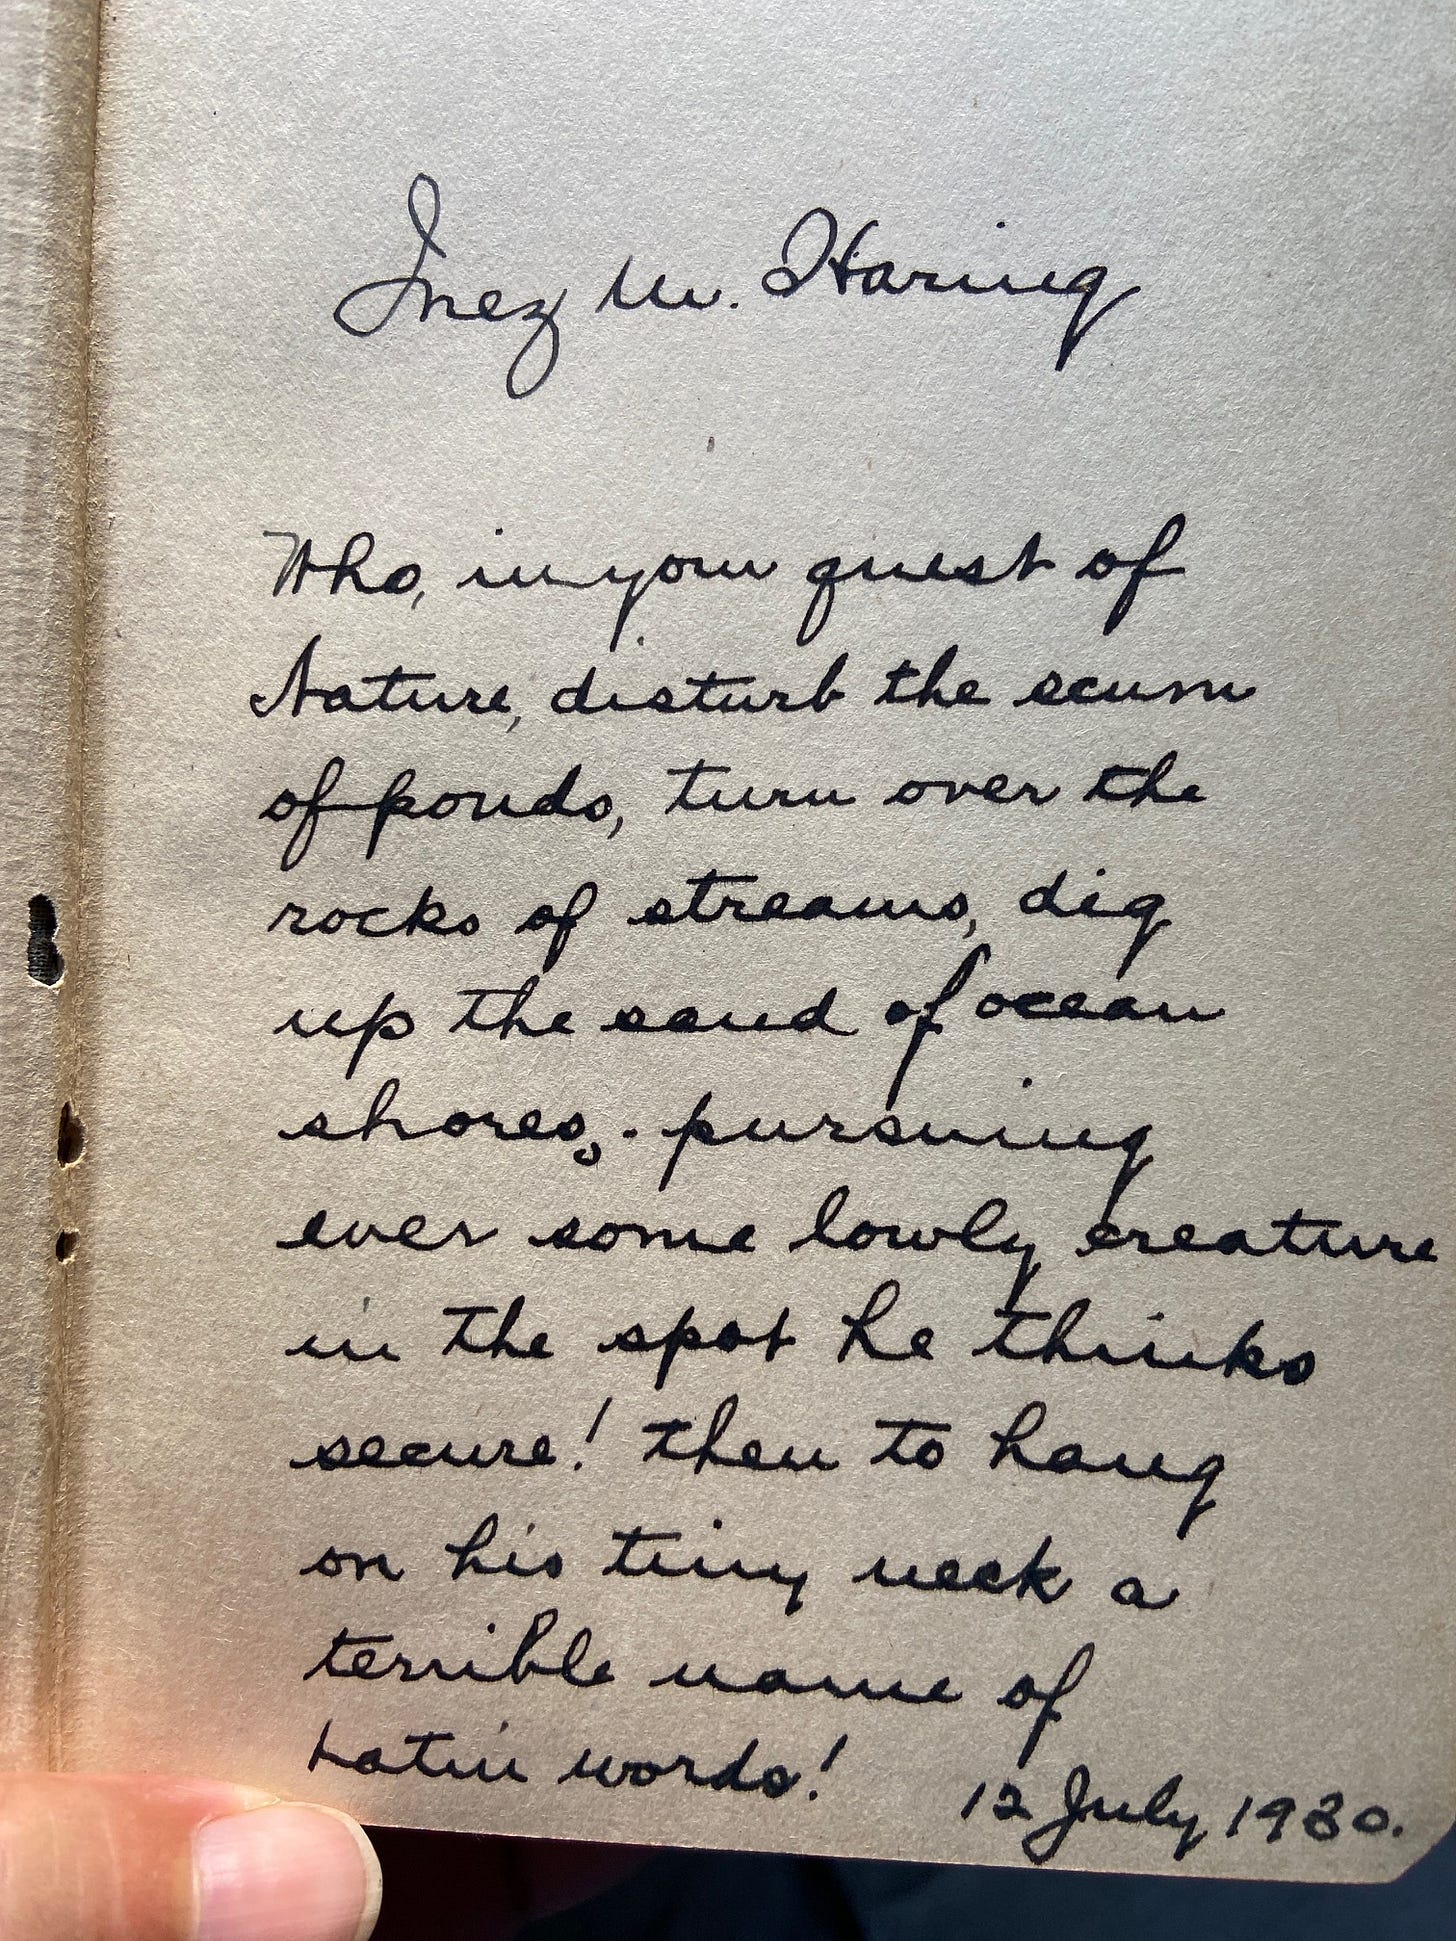 Inez M. Haring
Who, in your quest of
Nature, disturb the scum
of ponds, turn over the
rocks of streams, dig
up the sand of ocean
shores, - pursuing
ever some lowly creature
in the spot he thinks
secure! then to hang
on his tiny neck a
terrible name of
Latin words!
12 July 1930.